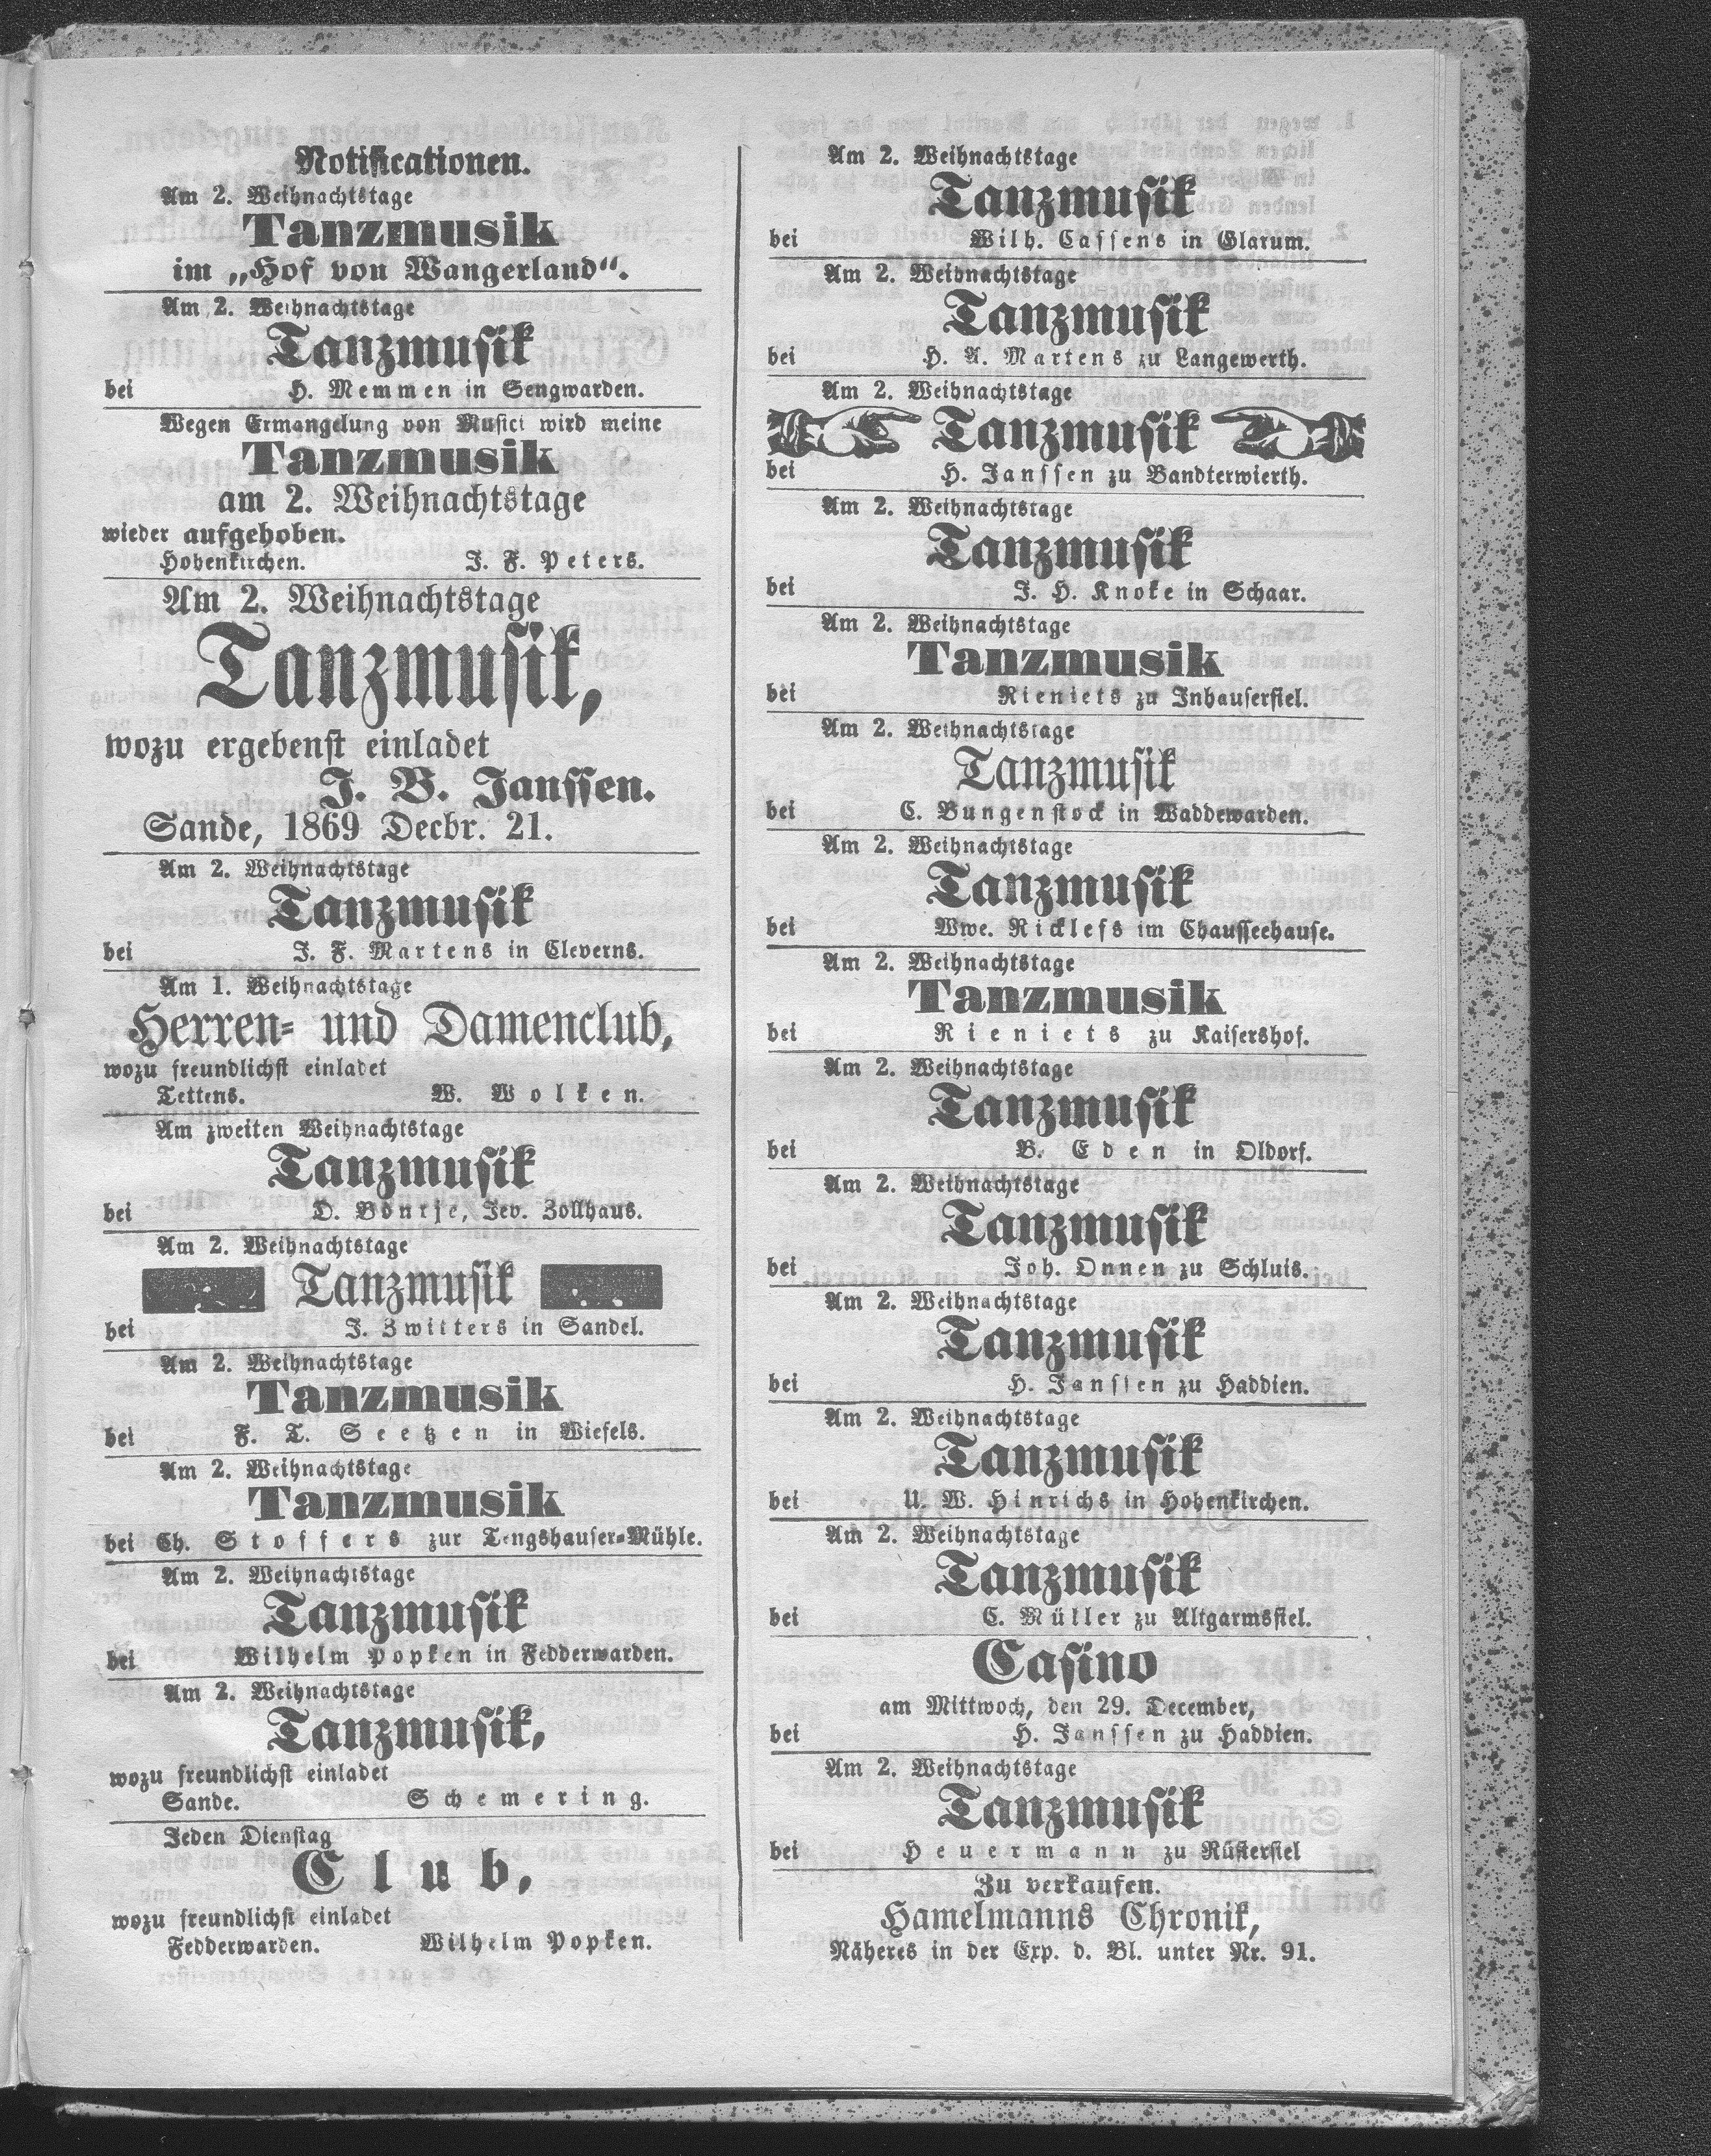 Notificationen.
Am 2. Weihnachtstage
Tanzmusik
im „Hof von Wangerland“.
Am 2. Weihnachtstage
Tanzmusik
bei H. Memmen in Sengwarden.
Wegen Ermangelung von Musici wird meine
Tanzmusik
am 2. Weihnachtstage
wieder aufgehoben.
Hohenkirchen. J. F. Peters.
Am 2. Weihnachtstage
Tanzmusik,
wozu ergebenst einladet
J. B. Janssen.
Sande, 1869 Decbr. 21.
Am 2. Weihnachtstage
Tanzmusik
bei J. F. Martens in Cleverns.
Am 1. Weihnachtstage
Herren- und Damenclub,
wozu freundlichst einladet
Tettens. W. Wolken.
Am zweiten Weihnachtstage
Tanzmusik
bei D. Jev. Zollhaus.
Am 2. Weihnachtstage
Tanzmusik
bei J. Zwitters in Sandel.
Am 2. Weihnachtstage
Tanzmusik
bei F. T. Seetzen in Wiefels.
Am 2. Weihnachtstage
Tanzmusik
bei Ch. Stoffers zur Tengshauser-Mühle.
Am 2. Weihnachtstage
Tanzmusik
bei Wilhelm Popken in Fedderwarden.
Am 2. Weihnachtstage
Tanzmusik,
wozu freundlichst einladet
Sande. Schemering.
Jeden Dienstag
Club,
wozu freundlichst einladet
Fedderwarden. Wilhelm Popken.
Am 2. Weihnachtstage
Tanzmusik
bei Wilh. Cassens in Glarum.
Am 2. Weihnachtstage
Tanzmusik
bei H. A. Martens zu Langewerth.
Am 2. Weihnachtstage
Tanzmusik
bei H. Janssen zu Bandterwierth.
Am 2. Weihnachtstage
Tanzmusik
bei J. H. Knoke in Schaar.
Am 2. Weihnachtstage
Tanzmusik
bei Rieniets zu Inhausersiel.
Am 2. Weihnachtstage
Tanzmusik
bei C. Bungenstock in Waddewarden.
Am 2. Weihnachtstage
Tanzmusik
bei Wwe. Ricklefs im Chausseehause.
Am 2. Weihnachtstage
Tanzmusik
bei Rieniets zu Kaisershof.
Am 2. Weihnachtstage
Tanzmusik
bei B. Eden in Oldorf.
Am 2. Weihnachtstage
Tanzmusik
bei Joh. Onnen zu Schluis.
Am 2. Weihnachtstage
Tanzmusik
bei H. Janssen zu Haddien.
Am 2. Weihnachtstage
Tanzmusik
bei U. W. Hinrichs in Hohenkirchen.
Am 2. Weihnachtstage
Tanzmusik
bei C. Müller zu Altgarmssiel.
Casino
am Mittwoch, den 29. December,
bei H. Janssen zu Haddien.
Am 2. Weihnachtstage
Tanzmusik
bei Heuermann zu Rüstersiel
Zu verkaufen.
Hamelmanns Chronik,
Näheres in der Exp. d. Bl. unter Nr. 91.